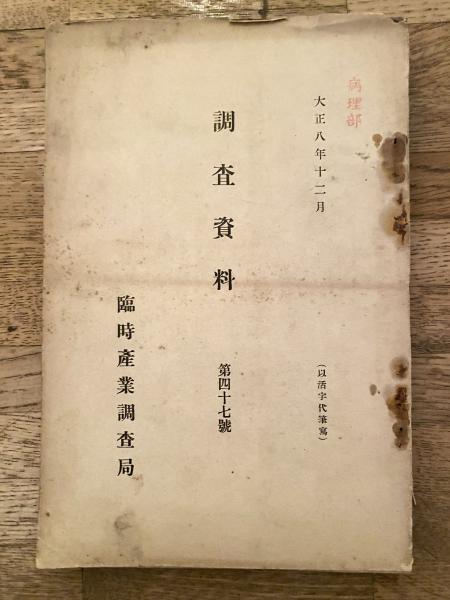 病理部
大正八年十二月
(以活字代筆寫)
調査資料
第四十七號
臨時產業調查局